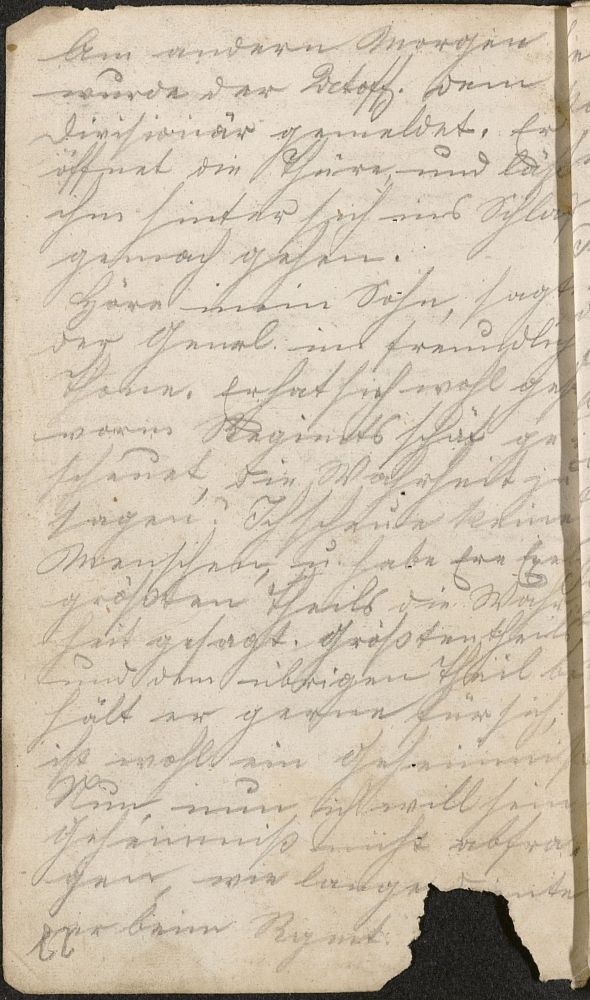 Am andern Morgen
wurde der Detoff. dem
Divisionär gemeldet. Er
öffnet die Thüre, und läßt
ihn hinter sich ins Schlaf
gemach gehen.
Höre mein Sohn, sagt
der Genrl. im freundlich
Thone. Er hat sich wohl
vorm Regimts
scheuet, die Wahrheit zu
sagen? Ich scheue keine
Menschen, u. habe Ere Exe
größten Theils die Wahr
heit gesagt. Größtentheils,
und den übrigen Theil be
hält er gerne für sich,
ist wohl ein Geheimniß
Nun, nun, ich will sein
Geheimniß nicht abfra,
gen, wie lange diente
er beim Regmt.